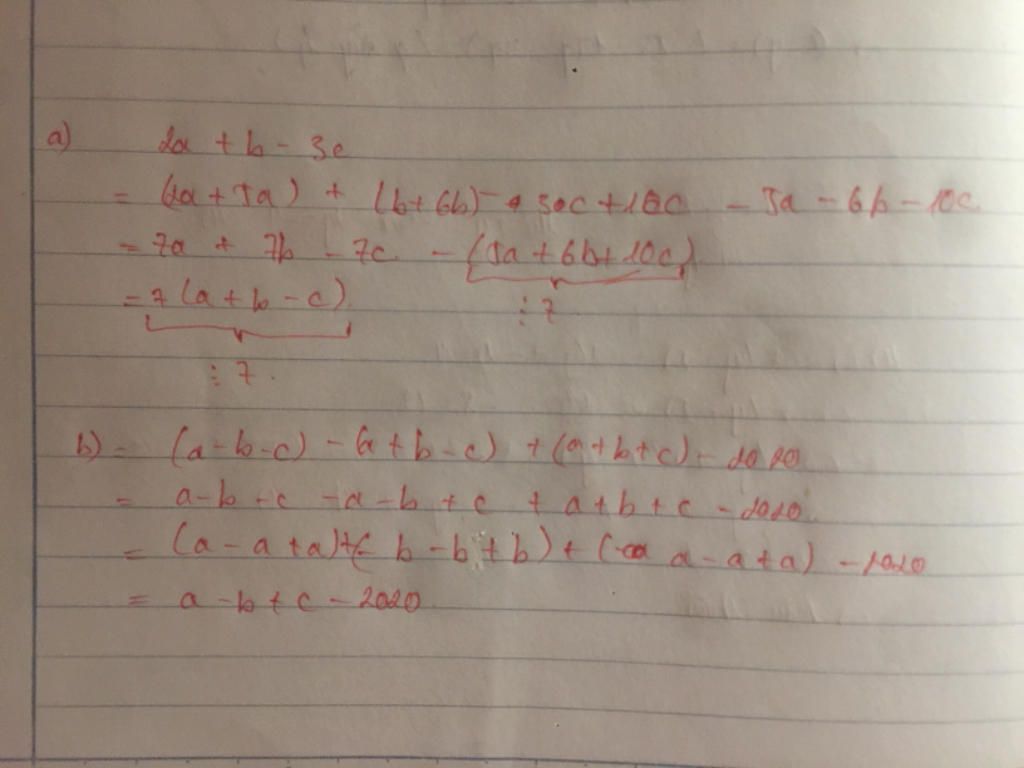 a) 2a + b - 3c
= (2a + 5a) + (b + 6b) - 3 c + 10c - 5a - 6b - 10c
= 7a + 7b - 7c - (5a + 6b + 10c)
= 7 (a + b - c) ⋮ 7
⋮ 7
b) = (a - b - c) - (a + b - c) + (a + b + c) - 2020
= a - b - c - a - b + c + a + b + c - 2020
= (a - a + a) + (- b - b + b) + ( a - a + a) - 2020
= a - b + c - 2020